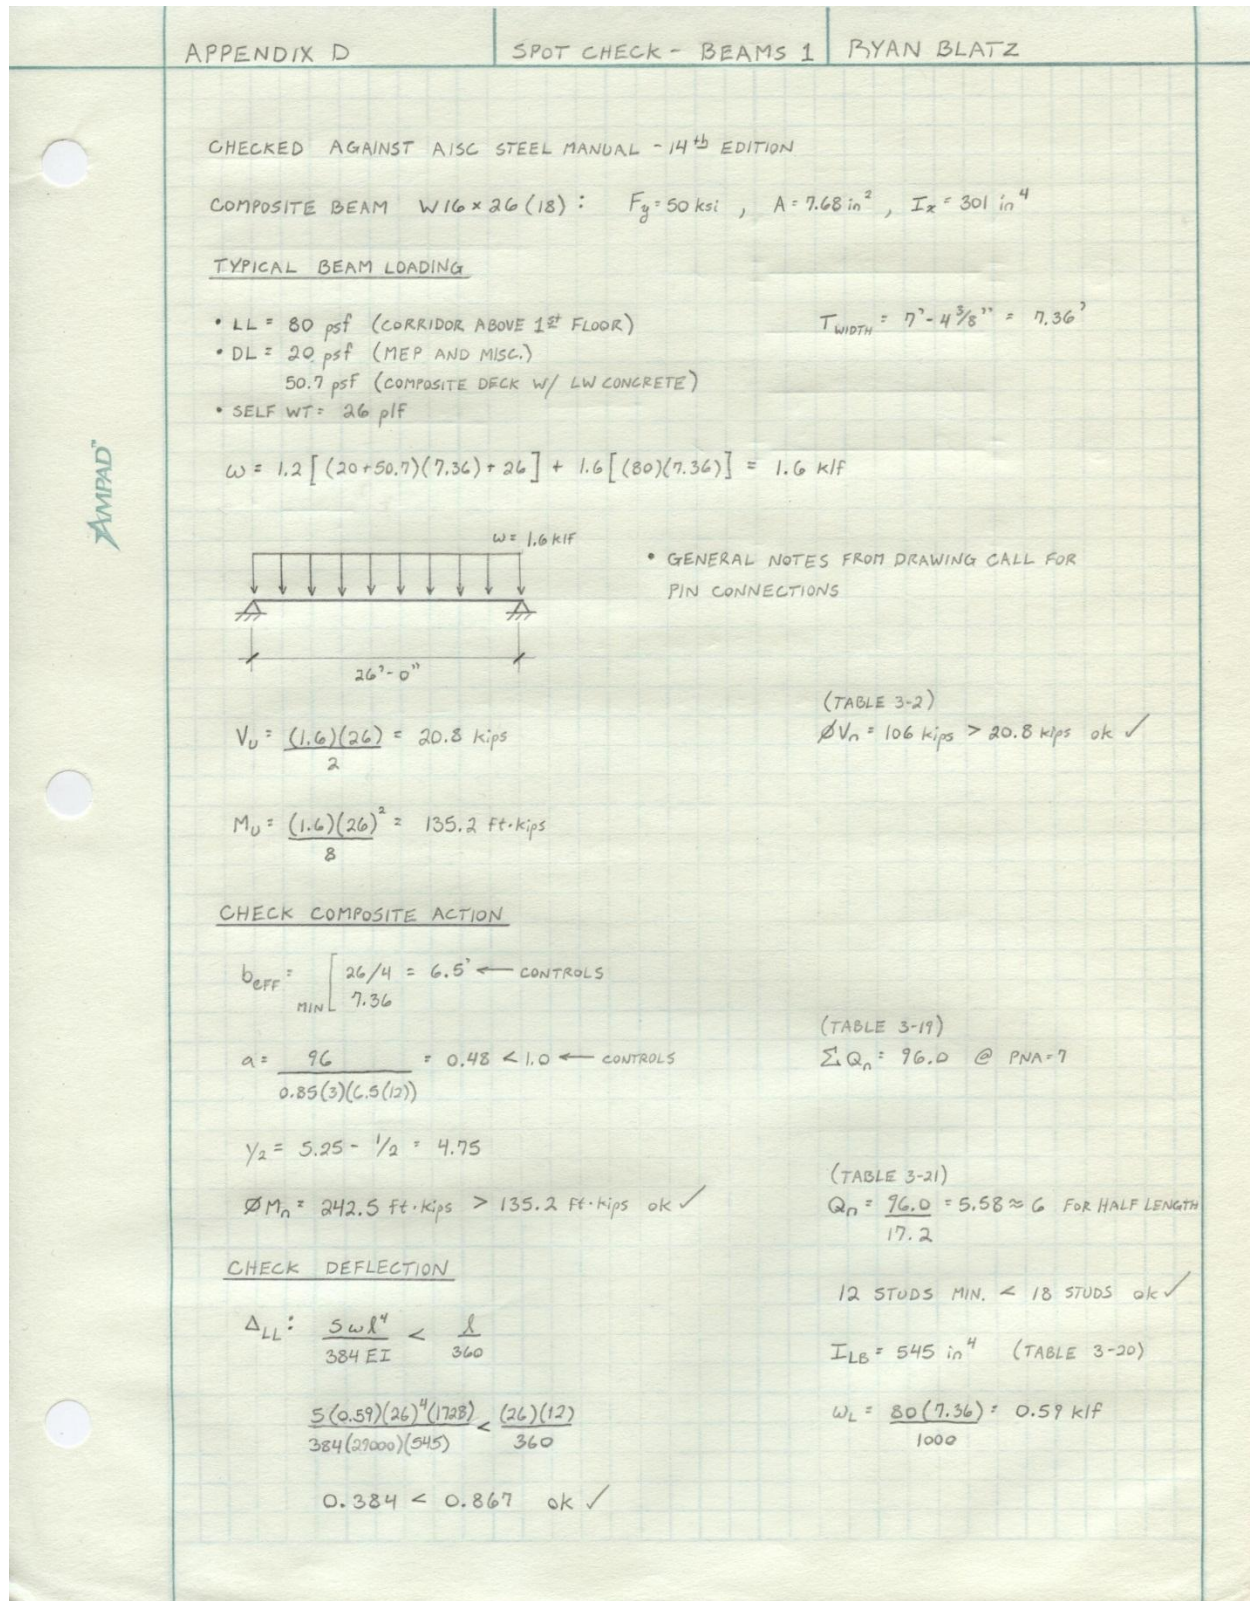 APPENDIX D SPOT CHECK - BEAMS 1 RYAN BLATZ
CHECKED AGAINST AISC STEEL MANUAL - 14th EDITION
COMPOSITE BEAM W16×26 (18): Fy = 50 ksi, A = 7.68 in², Ix = 301 in⁴
TYPICAL BEAM LOADING
• LL = 80 psf (CORRIDOR ABOVE 1st FLOOR) T WIDTH = 7'-4 3/8" = 7.36'
• DL = 20 psf (MEP AND MISC.)
50.7 psf (COMPOSITE DECK W/ LW CONCRETE)
• SELF WT = 26 plf
AMPAD™
ω = 1.2[(20+50.7)(7.36)+26] + 1.6[(80)(7.36)] = 1.6 klf
ω = 1.6 klf
• GENERAL NOTES FROM DRAWING CALL FOR
PIN CONNECTIONS
26'-0"
(TABLE 3-2)
Vu = (1.6)(26)/2 = 20.8 kips ØVn = 106 kips > 20.8 kips ok ✓
Mu = (1.6)(26)²/8 = 135.2 ft·kips
CHECK COMPOSITE ACTION
bEFF = MIN [ 26/4 = 6.5' ← CONTROLS
7.36
(TABLE 3-19)
a = 96/0.85(3)(6.5(12)) = 0.48 < 1.0 ← CONTROLS ΣQn = 96.0 @ PNA=7
Y2 = 5.25 - 1/2 = 4.75
(TABLE 3-21)
ØMn = 242.5 ft·kips > 135.2 ft·kips ok ✓ Qn = 96.0/17.2 = 5.58 ≈ 6 FOR HALF LENGTH
CHECK DEFLECTION
12 STUDS MIN. < 18 STUDS ok ✓
ΔLL: 5ωl⁴/384EI < l/360 ILB = 545 in⁴ (TABLE 3-20)
5(0.59)(26)⁴(1728)/384(29000)(545) < (26)(12)/360 ωL = 80(7.36)/1000 = 0.59 klf
0.384 < 0.867 ok ✓